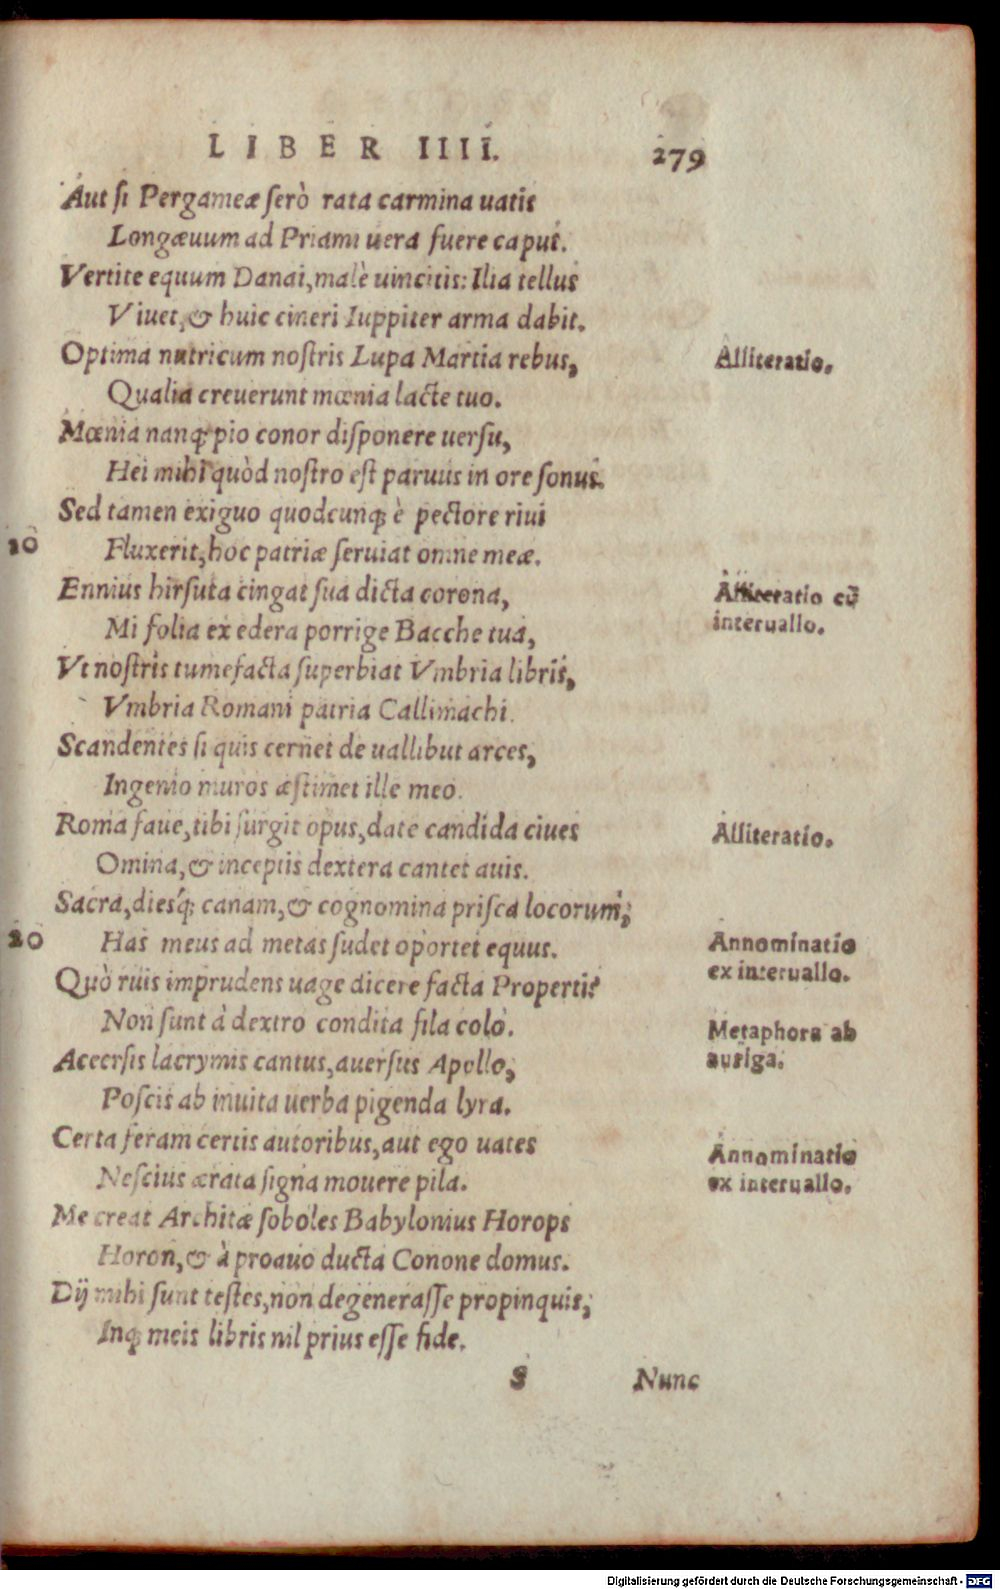 LIBER IIII. 279
Aut si Pergameæ serò rata carmina uatis
Longæuum ad Priami uera fuere caput.
Vertite equum Danai, malè uincitis: Ilia tellus
Viuet, & huic cineri Iuppiter arma dabit.
Optima nutricum nostris Lupa Martia rebus,
Alliteratio.
Qualia creuerunt mœnia lacte tuo.
Mœnia nanq; pio conor disponere uersu,
Hei mihi quòd nostro est paruus in ore sonus.
Sed tamen exiguo quodcunq; è pectore riui
10 Fluxerit, hoc patriæ seruiat omne meæ.
Ennius hirsuta cingat sua dicta corona,
Alliteratio cũ
interuallo.
Mi folia ex edera porrige Bacche tua,
Vt nostris tumefacta superbiat Vmbria libris,
Vmbria Romani patria Callimachi.
Scandentes si quis cernet de uallibut arces,
Ingenio muros æstimet ille meo.
Roma faue, tibi surgit opus, date candida ciues
Alliteratio.
Omina, & inceptis dextera cantet auis.
Sacra, diesq; canam, & cognomina prisca locorum;
20 Has meus ad metas sudet oportet equus.
Annominatio
ex interuallo.
Quò ruis imprudens uage dicere facta Properti?
Non sunt à dextro condita fila colo.
Metaphora ab
auriga.
Accersis lacrymis cantus, auersus Apollo,
Poscis ab inuita uerba pigenda lyra.
Certa feram certis autoribus, aut ego uates
Annominatio
ex interuallo.
Nescius ærata signa mouere pila.
Me creat Architæ soboles Babylonius Horops
Horon, & à proauo ducta Conone domus.
Dij mihi sunt testes, non degenerasse propinquis;
Inq; meis libris nil prius esse fide.
S Nunc
Digitalisierung gefördert durch die Deutsche Forschungsgemeinschaft - DFG